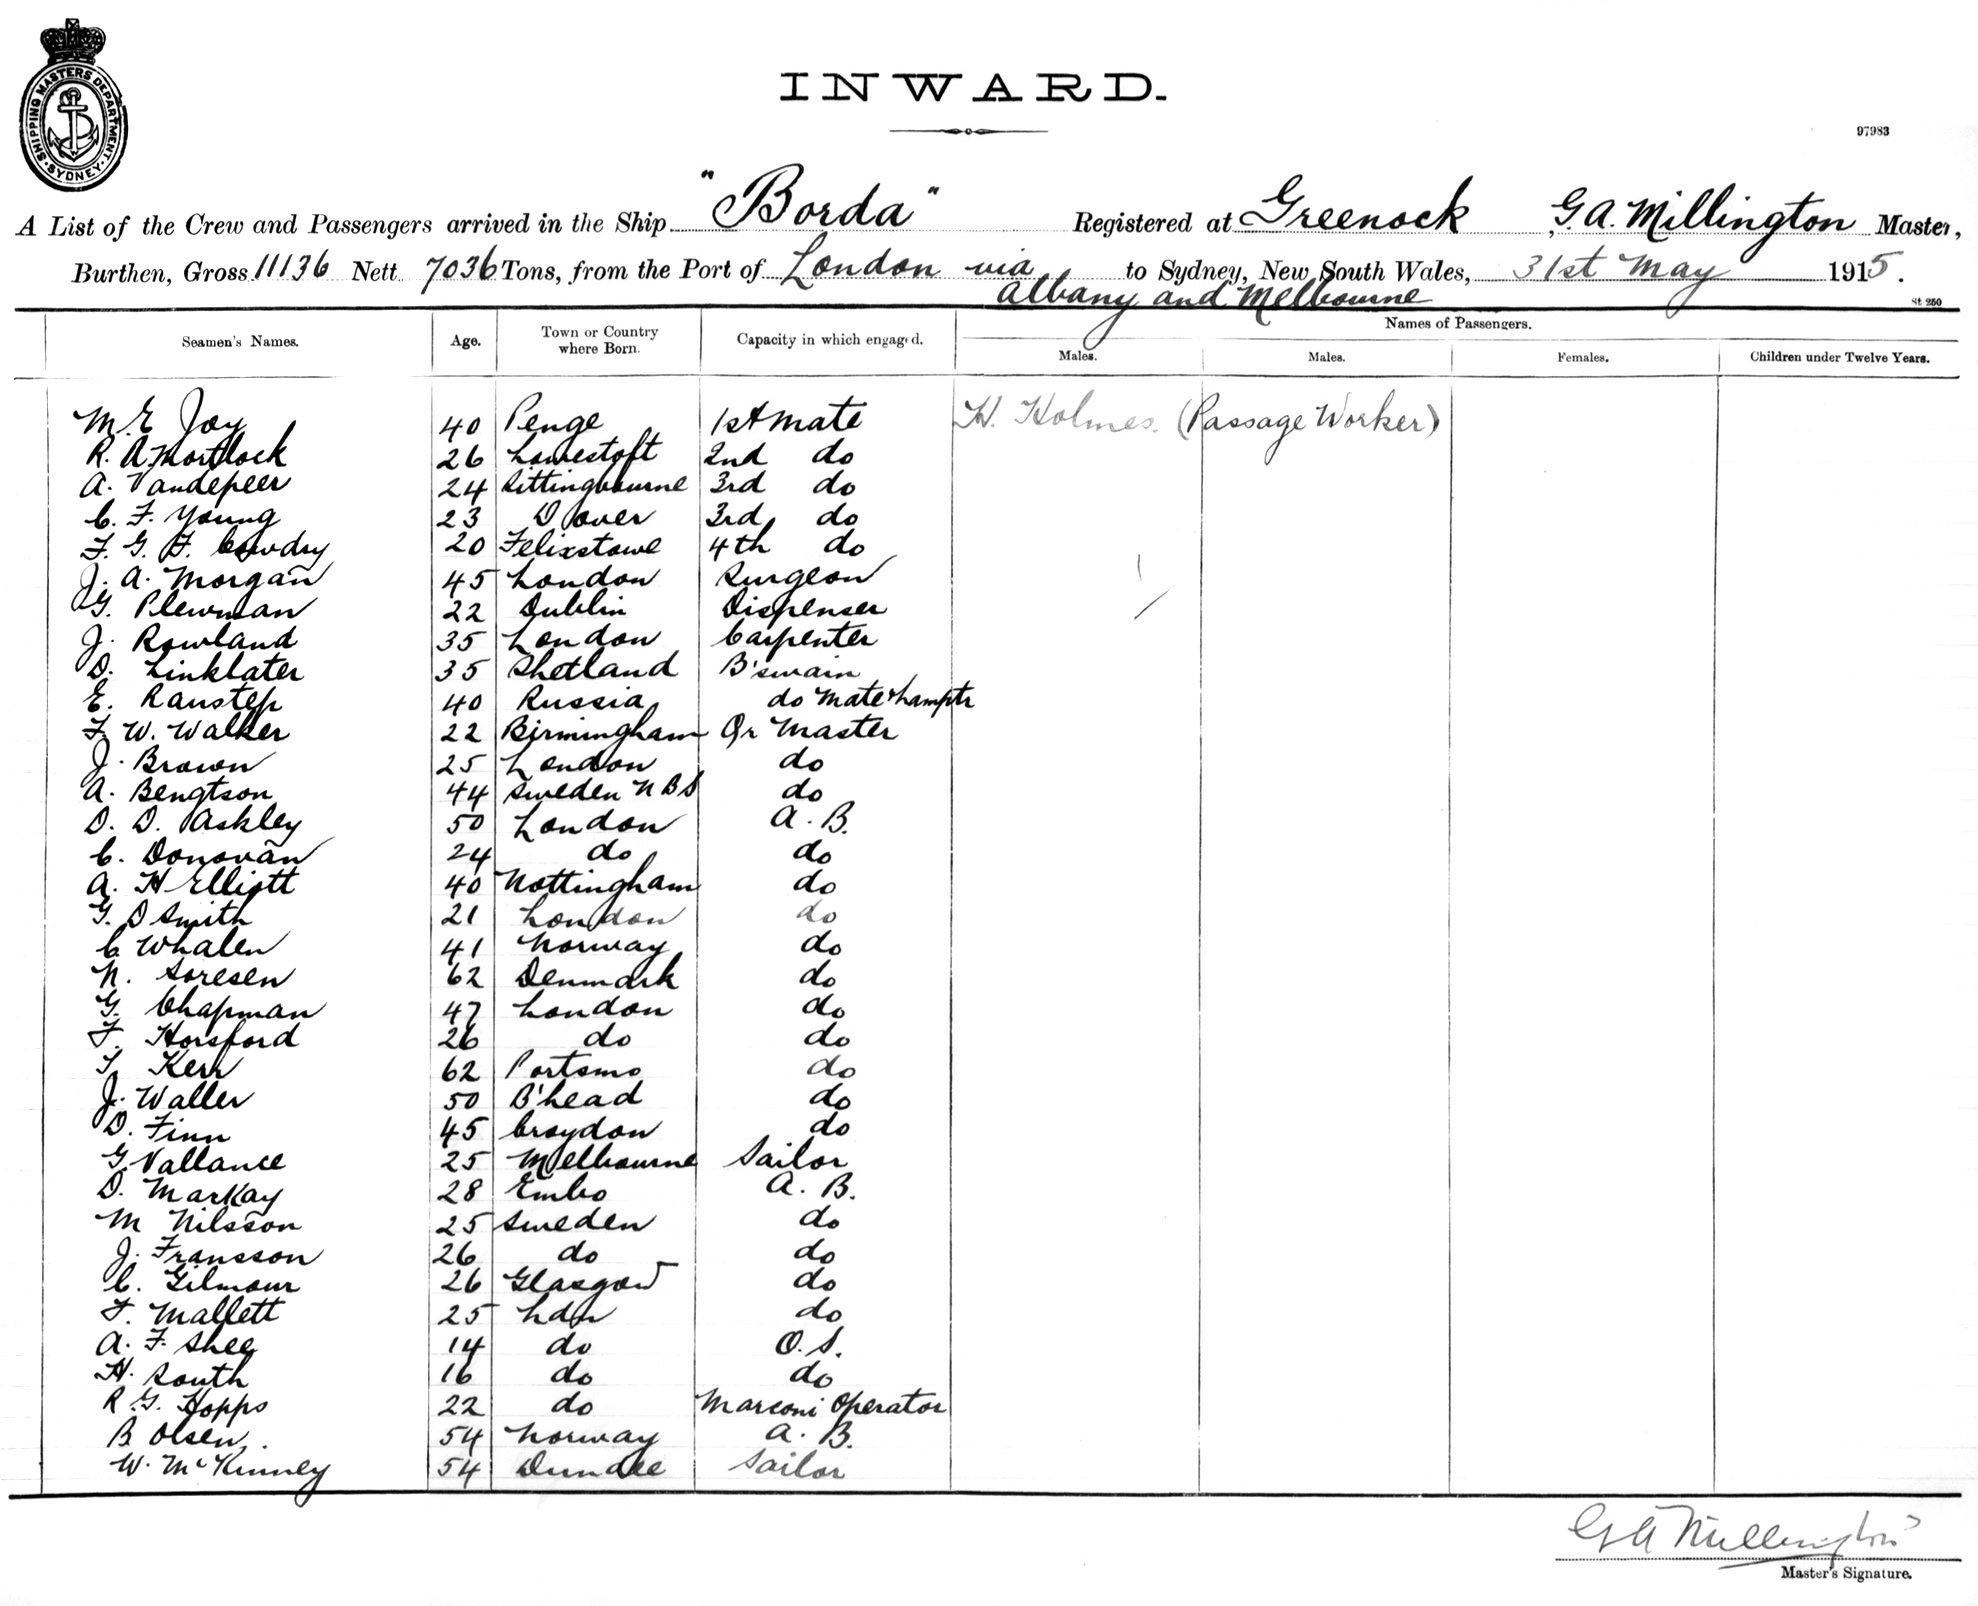 SHIPPING MASTERS DEPARTMENT. SYDNEY.
INWARD.
97983
A List of the Crew and Passengers arrived in the Ship "Borda" Registered at Greenock, G. A. Millington Master,
Burthen, Gross 11136 Nett 7036 Tons, from the Port of London via to Sydney, New South Wales, 31st May 1915.
Albany and Melbourne
St 250
Seamen's Names. Age. Town or Country where Born. Capacity in which engaged. Names of Passengers.
Males. Males. Females. Children under Twelve Years.
M. E Joy 40 Penge 1st Mate H. Holmes. (Passage Worker)
R. A. Mortlock 26 Lowestoft 2nd do
A. Vandepeer 24 Sittingbourne 3rd do
C. F. Young 23 Dover 3rd do
F. G. F. Cowdry 20 Felixstowe 4th do
J. A. Morgan 45 London Surgeon
G. Plewman 22 Dublin Dispenser
J. Rowland 35 London Carpenter
D. Linklater 35 Shetland B'swain
E. Ranstep 40 Russia do Mate & Lamptr
F. W. Walker 22 Birmingham Qr Master
J. Brown 25 London do
A. Bengtson 44 Sweden N B S do
D. D. Askley 50 London A. B.
C. Donovan 24 do do
A. H Elliott 40 Nottingham do
G. D Smith 21 London do
C Whalen 41 Norway do
N. Soresen 62 Denmark do
G. Chapman 47 London do
F. Horsford 26 do do
T. Kerr 62 Portsmo do
J. Waller 50 B'head do
D. Finn 45 Croydon do
G. Vallance 25 Melbourne Sailor
D. Markay 28 Embo A. B.
M Nilsson 25 Sweden do
J. Fransson 26 do do
C. Gilmour 26 Glasgow do
F. Mallett 25 Ldn do
A. F. Shee 14 do O. S.
H. South 16 do do
R. G. Hopps 22 do Marconi Operator
B Olsen. 54 Norway A. B.
W. McKinney 54 Dundee Sailor
G A Millington
Master's Signature.